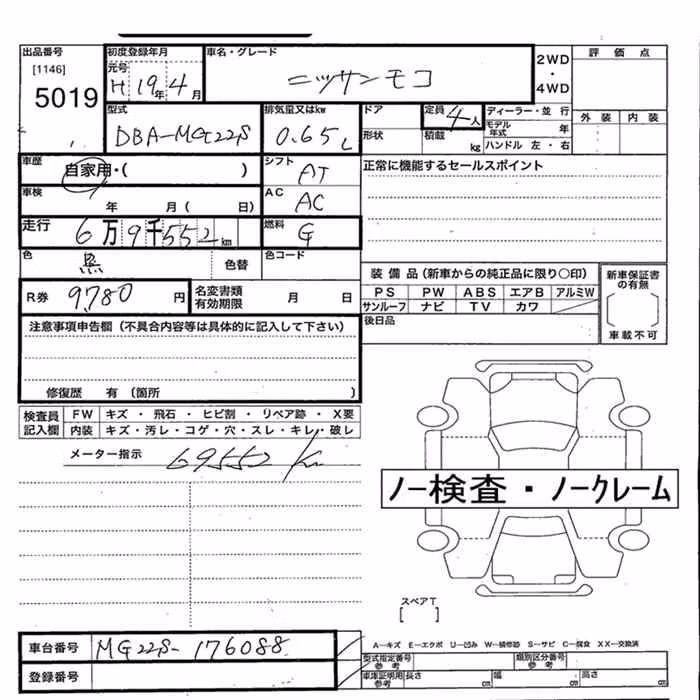 出品番号
[1146]
5019
初度登録年月
元号
H 19年 4月
車名・グレード
ニッサンモコ
2WD
・
4WD
評価点
外装 内装
型式
DBA-MG22S
排気量又はkw
0.65L
ドア
形状
定員 4人
積載 kg
ディーラー・並行
モデル年式 年
ハンドル 左・右
車歴
自家用・( )
シフト
AT
正常に機能するセールスポイント
車検
年 月( 日)
AC
AC
走行
6万9千552km
燃料
G
色
黒
色替
色コード
R券 9,780円
名変書類有効期限 月 日
装備品(新車からの純正品に限り○印)
PS PW ABS エアB アルミW
サンルーフ ナビ TV カワ
新車保証書の有無
車載不可
後日品
注意事項申告欄(不具合内容等は具体的に記入して下さい)
修復歴 有(箇所 )
検査員記入欄
FW キズ・飛石・ヒビ割・リペア跡・X要
内装 キズ・汚レ・コゲ・穴・スレ・キレ・破レ
メーター指示 69552 Km
ノー検査・ノークレーム
スペアT
[ ]
車台番号 MG22S-176088
登録番号
A-キズ E-エクボ U-凹み W-補修跡 S-サビ C-腐食 XX-交換済
型式指定番号参考
類別区分番号参考
車庫証明用参考
長さ cm
幅 cm
高さ cm